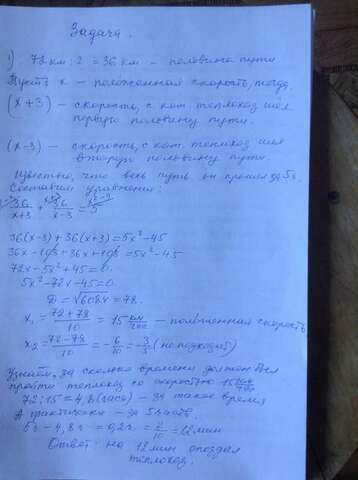 Задача.
1) 72 км : 2 = 36 км – половина пути
Пусть x – положенная скорость, тогда
(x+3) – скорость, с кот. теплоход шел
первую половину пути.
(x-3) – скорость, с кот. теплоход шел
вторую половину пути.
Известно, что весь путь он прошел за 5 ч.
Составим уравнение:
36/x+3 + 36/x-3 = 5
36(x-3) + 36(x+3) = 5x² - 45
36x - 108 + 36x + 108 = 5x² - 45
72x - 5x² + 45 = 0.
5x² - 72x - 45 = 0.
D = √6084 = 78.
x₁ = 72+78/10 = 15 км/час – положенная скорость
x₂ = 72-78/10 = -6/10 = -3/5 (не подходит)
Узнаем, за сколько времени должен был
пройти теплоход со скоростью 15 км/час
72 : 15 = 4,8 (часа) – за такое время
А фактически – за 5 часов.
5 ч - 4,8 ч = 0,2 ч = 2/10 = 12 мин
Ответ: на 12 мин опоздал
теплоход.